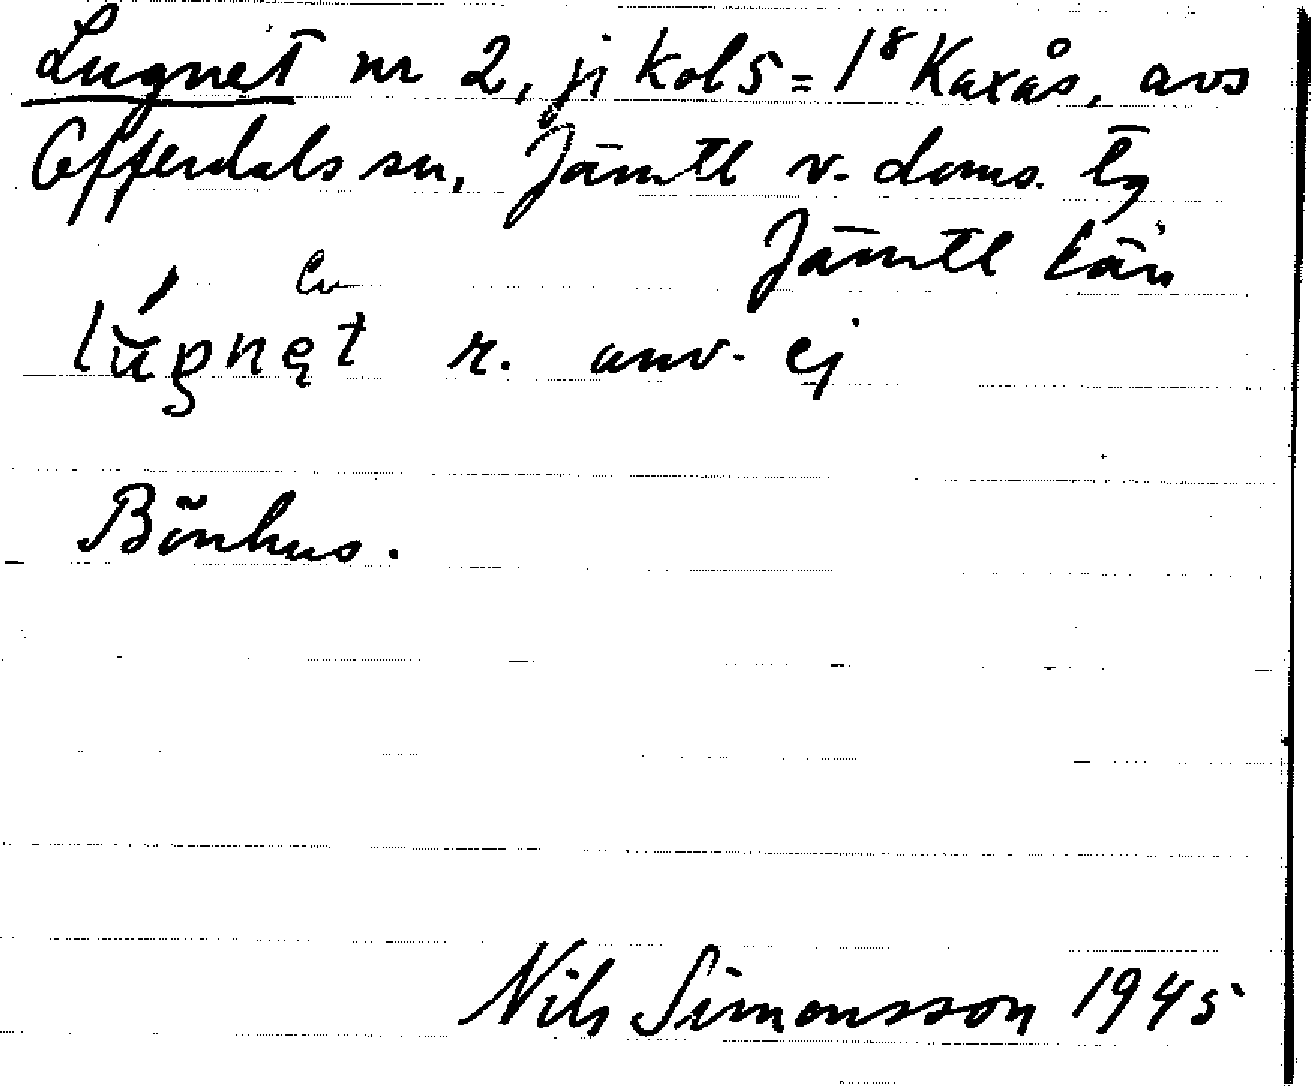 Lugnet nr 2, ji kol 5 = 1⁸ Kaxås, avs
Offerdals sn, Jämtl v. doms. lg
Jämtl län
lúgnęt r. anv. ej
Bönhus.
Nils Simonsson 1945